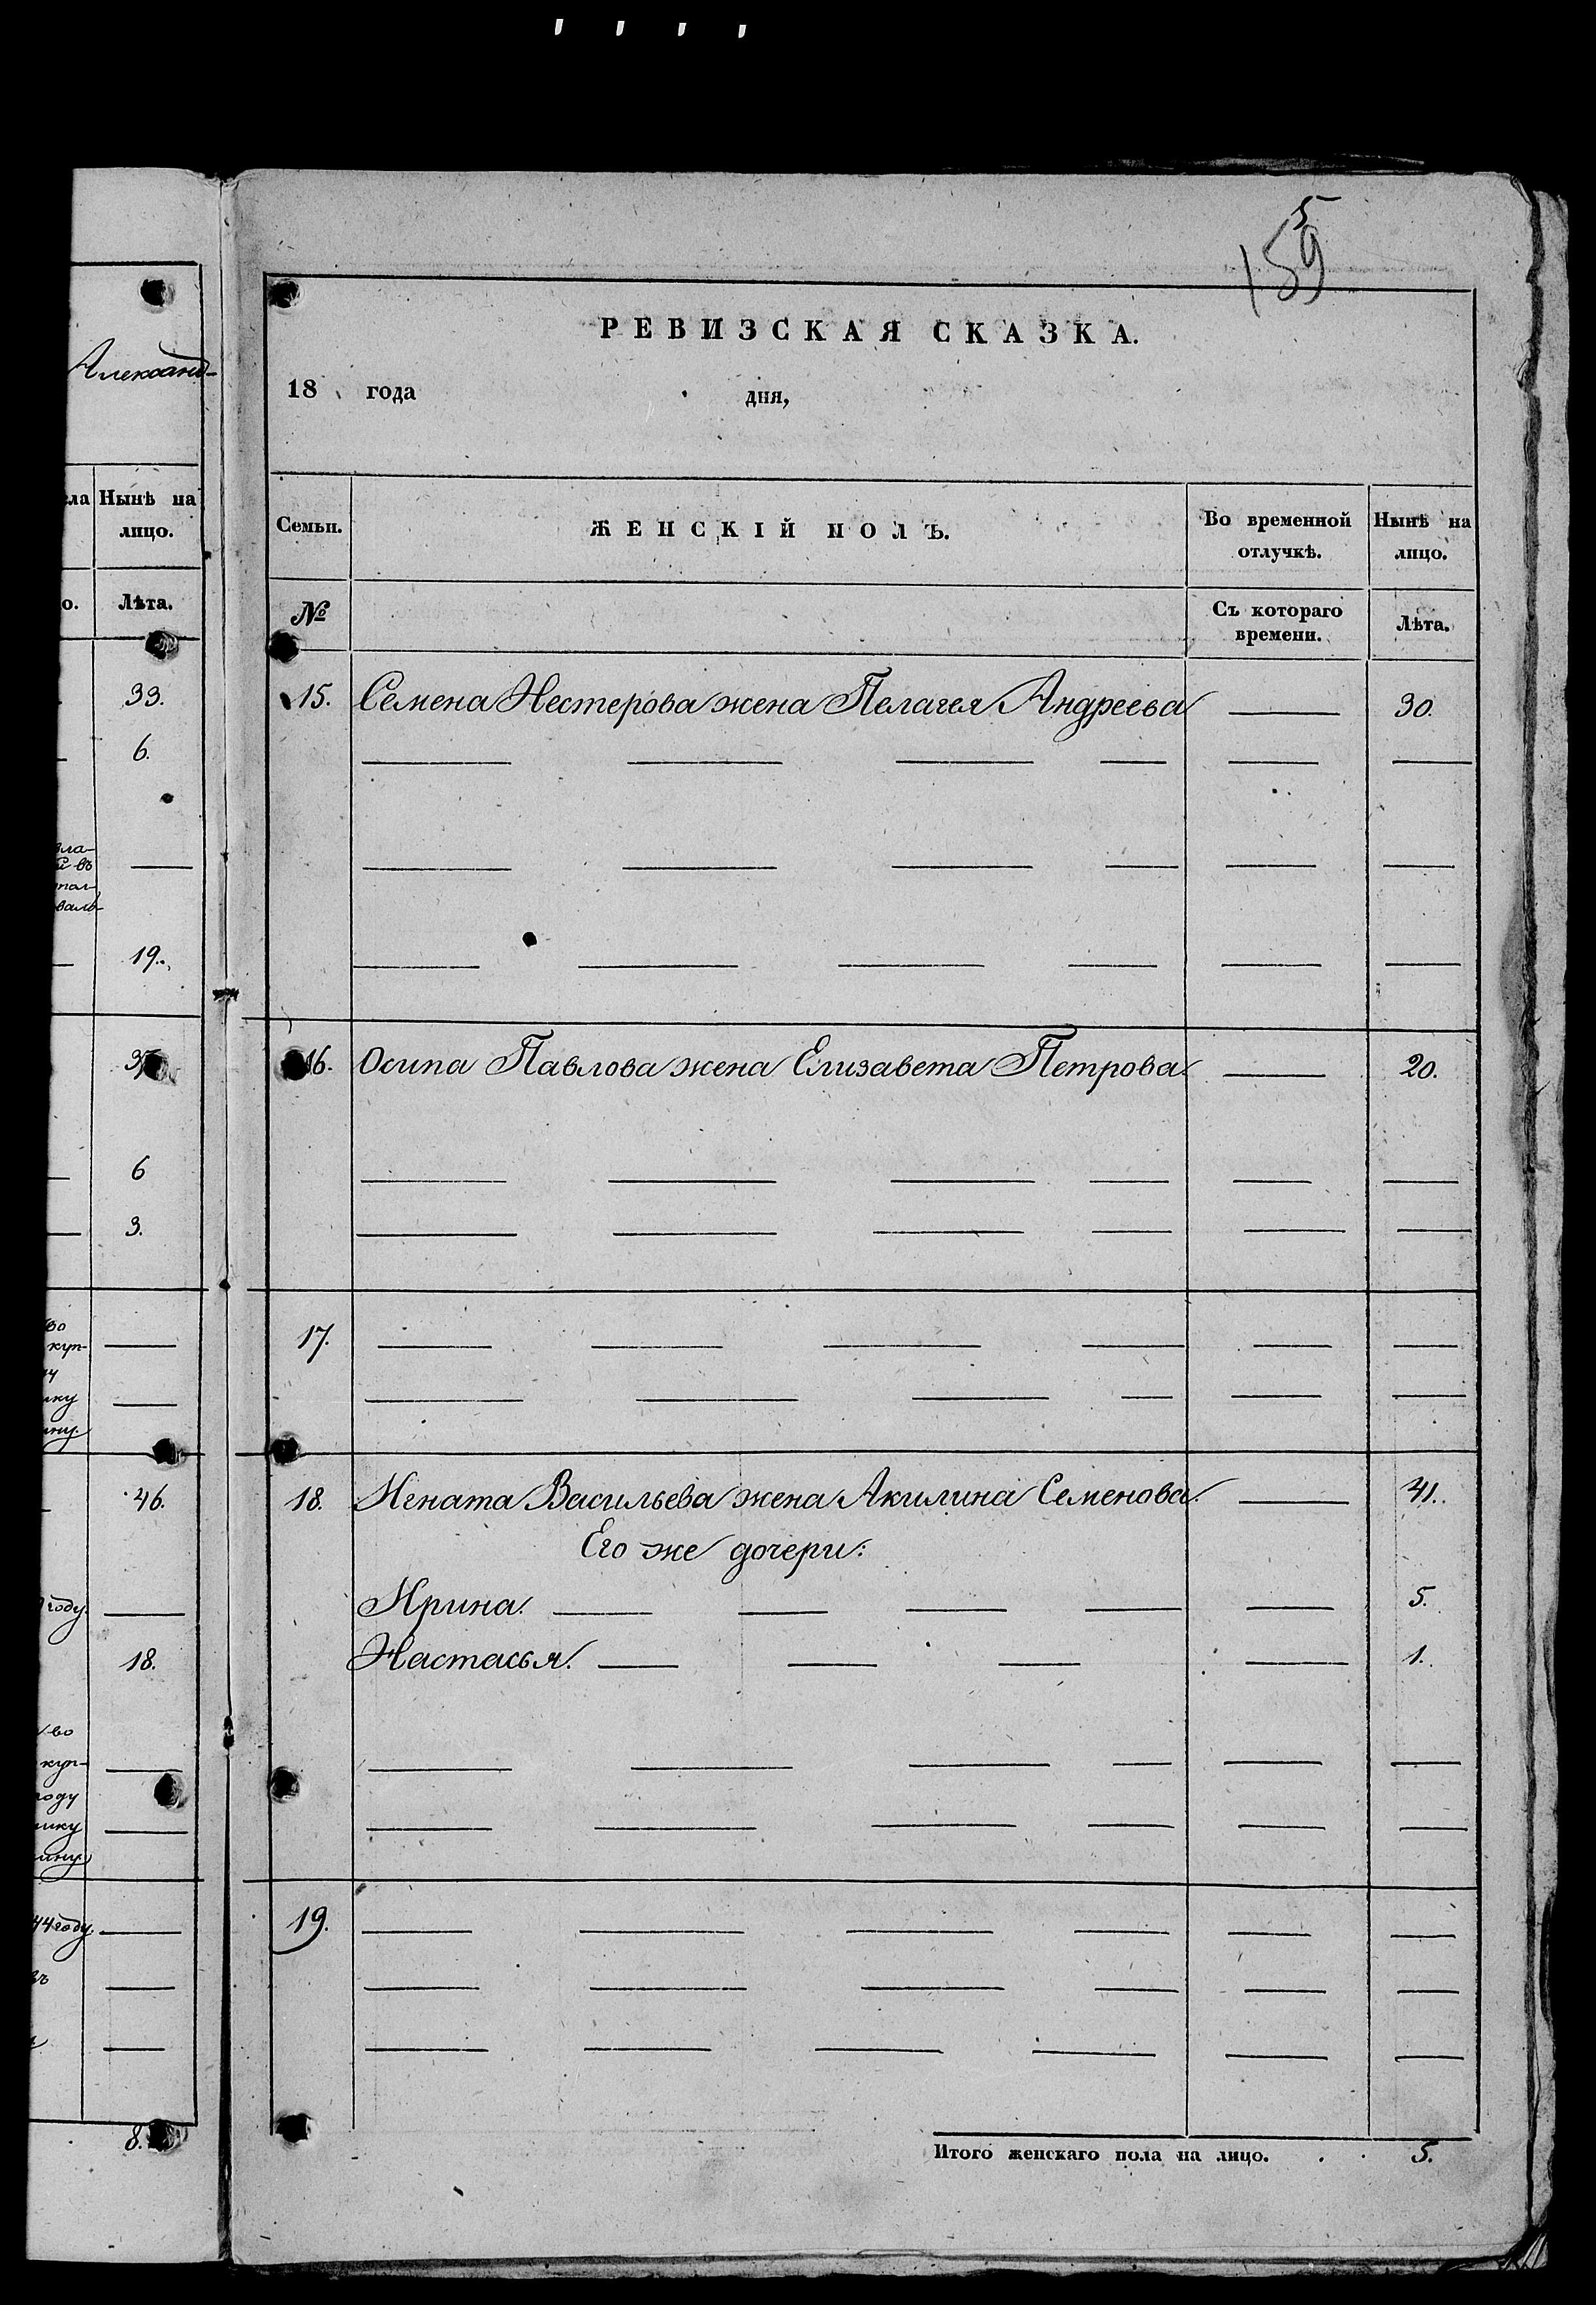 Александ-
ла Нынѣ на
лицо.
о. Лѣта.
33.
6.
вла-
й въ
19.
6
3.
во
куп-
ику
ину.
46.
году.
18.
во
куп-
году
ику
ину.
44 году.
въ
8.
5
159
РЕВИЗСКАЯ СКАЗКА.
18 года дня,
Семьи. ЖЕНСКІЙ ПОЛЪ. Во временной отлучкѣ. Нынѣ на лицо.
№ Съ котораго времени. Лѣта.
15. Семена Нестерова жена Пелагея Андреева 30.
16. Осипа Павлова жена Елизавета Петрова. 20.
17.
18. Игната Васильева жена Акилина Семенова. 41.
Его же дочери:
Ирина. 5.
Настасья. 1.
19.
Итого женскаго пола на лицо. . . 5.